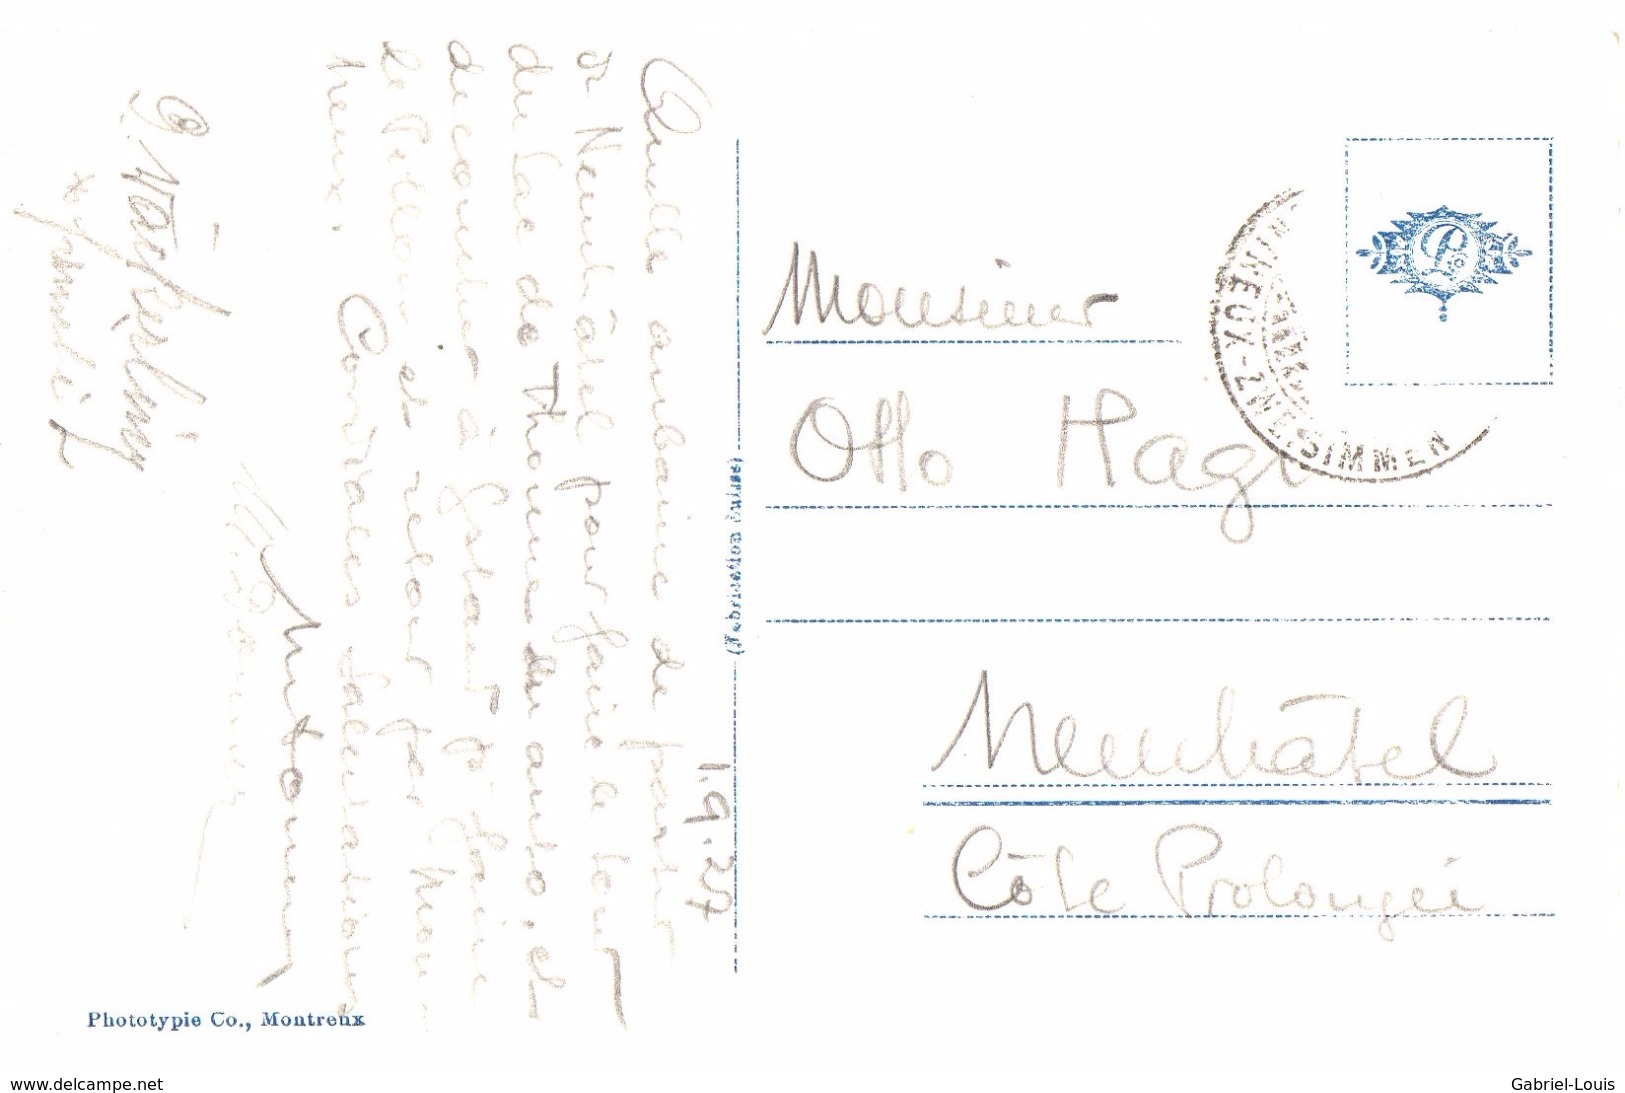 1.9.27
Quelle aubaine de partir
de Neuchâtel pour faire le tour
du Lac de Thoune en auto, et
de coucher à Gstaad pr faire
le Pillon et retour par Mon-
treux.
Cordiales salutations
Monsieur
Otto Hagi
Neuchâtel
Côte Prolongée
MONTREUX-ZWEISIMMEN
(Fabrication suisse)
Phototypie Co., Montreux
www.delcampe.net
Gabriel-Louis